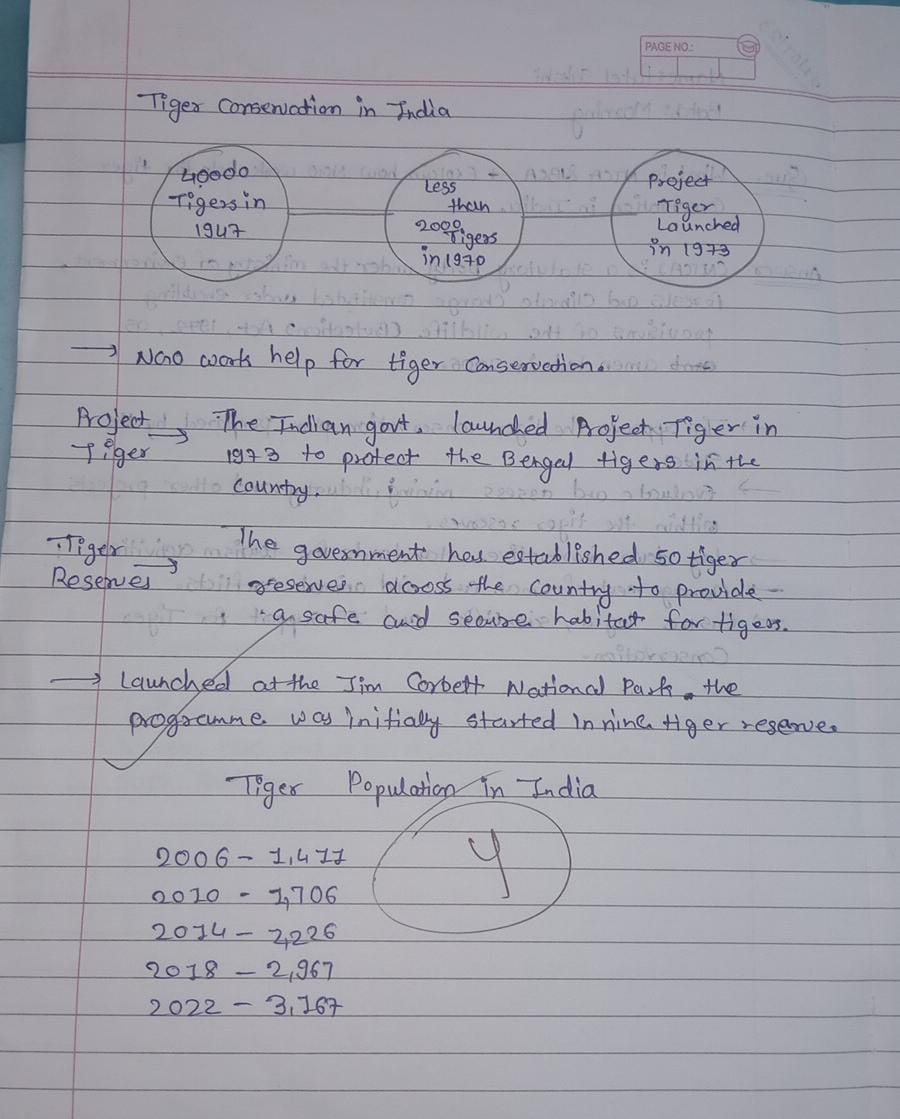 PAGE NO.:
Tiger Conservation in India
40000
Tigers in
1947
Less
than
2000
Tigers
in 1970
Project
Tiger
Launched
in 1973
→ Now work help for tiger Conservation.
Project → The Indian govt. launched Project Tiger in
Tiger 1973 to protect the Bengal tigers in the
country.
Tiger → The government has established 50 tiger
Reserves reserves across the country to provide
a safe and secure habitat for tigers.
→ Launched at the Jim Corbett National Park. the
programme was initially started in nine tiger reserve.
Tiger Population in India
4
2006 - 1,411
2010 - 1,706
2014 - 2,226
2018 - 2,967
2022 - 3,167